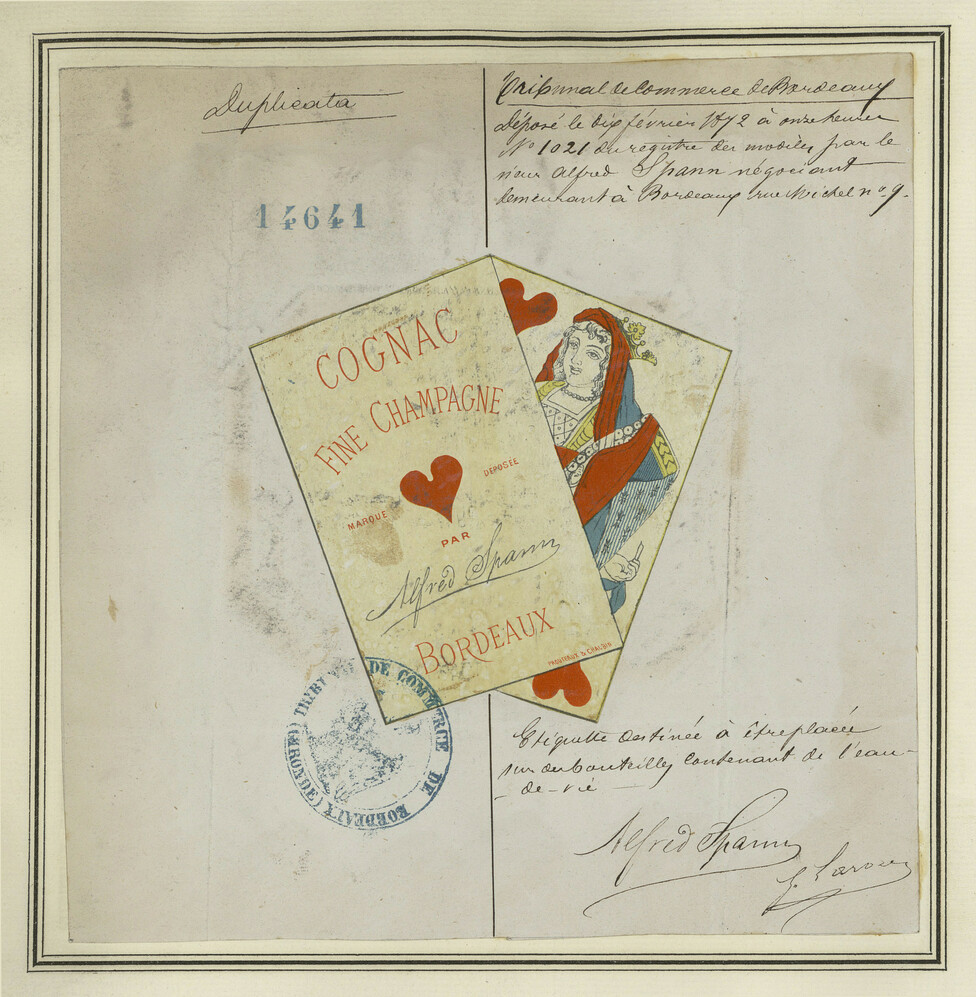 Duplicata
14641
Tribunal de Commerce de Bordeaux
Déposé le dix février 1872 à onze heures
N° 1021 du registre des modèles par le
sieur Alfred Spann négociant
demeurant à Bordeaux rue Michel n° 9.
COGNAC
FINE CHAMPAGNE
MARQUE DÉPOSÉE
PAR
Alfred Spann
BORDEAUX
TRIBUNAL DE COMMERCE DE BORDEAUX (GIRONDE)
Etiquette destinée à être placée
sur des bouteilles contenant de l'eau-
-de-vie
Alfred Spann